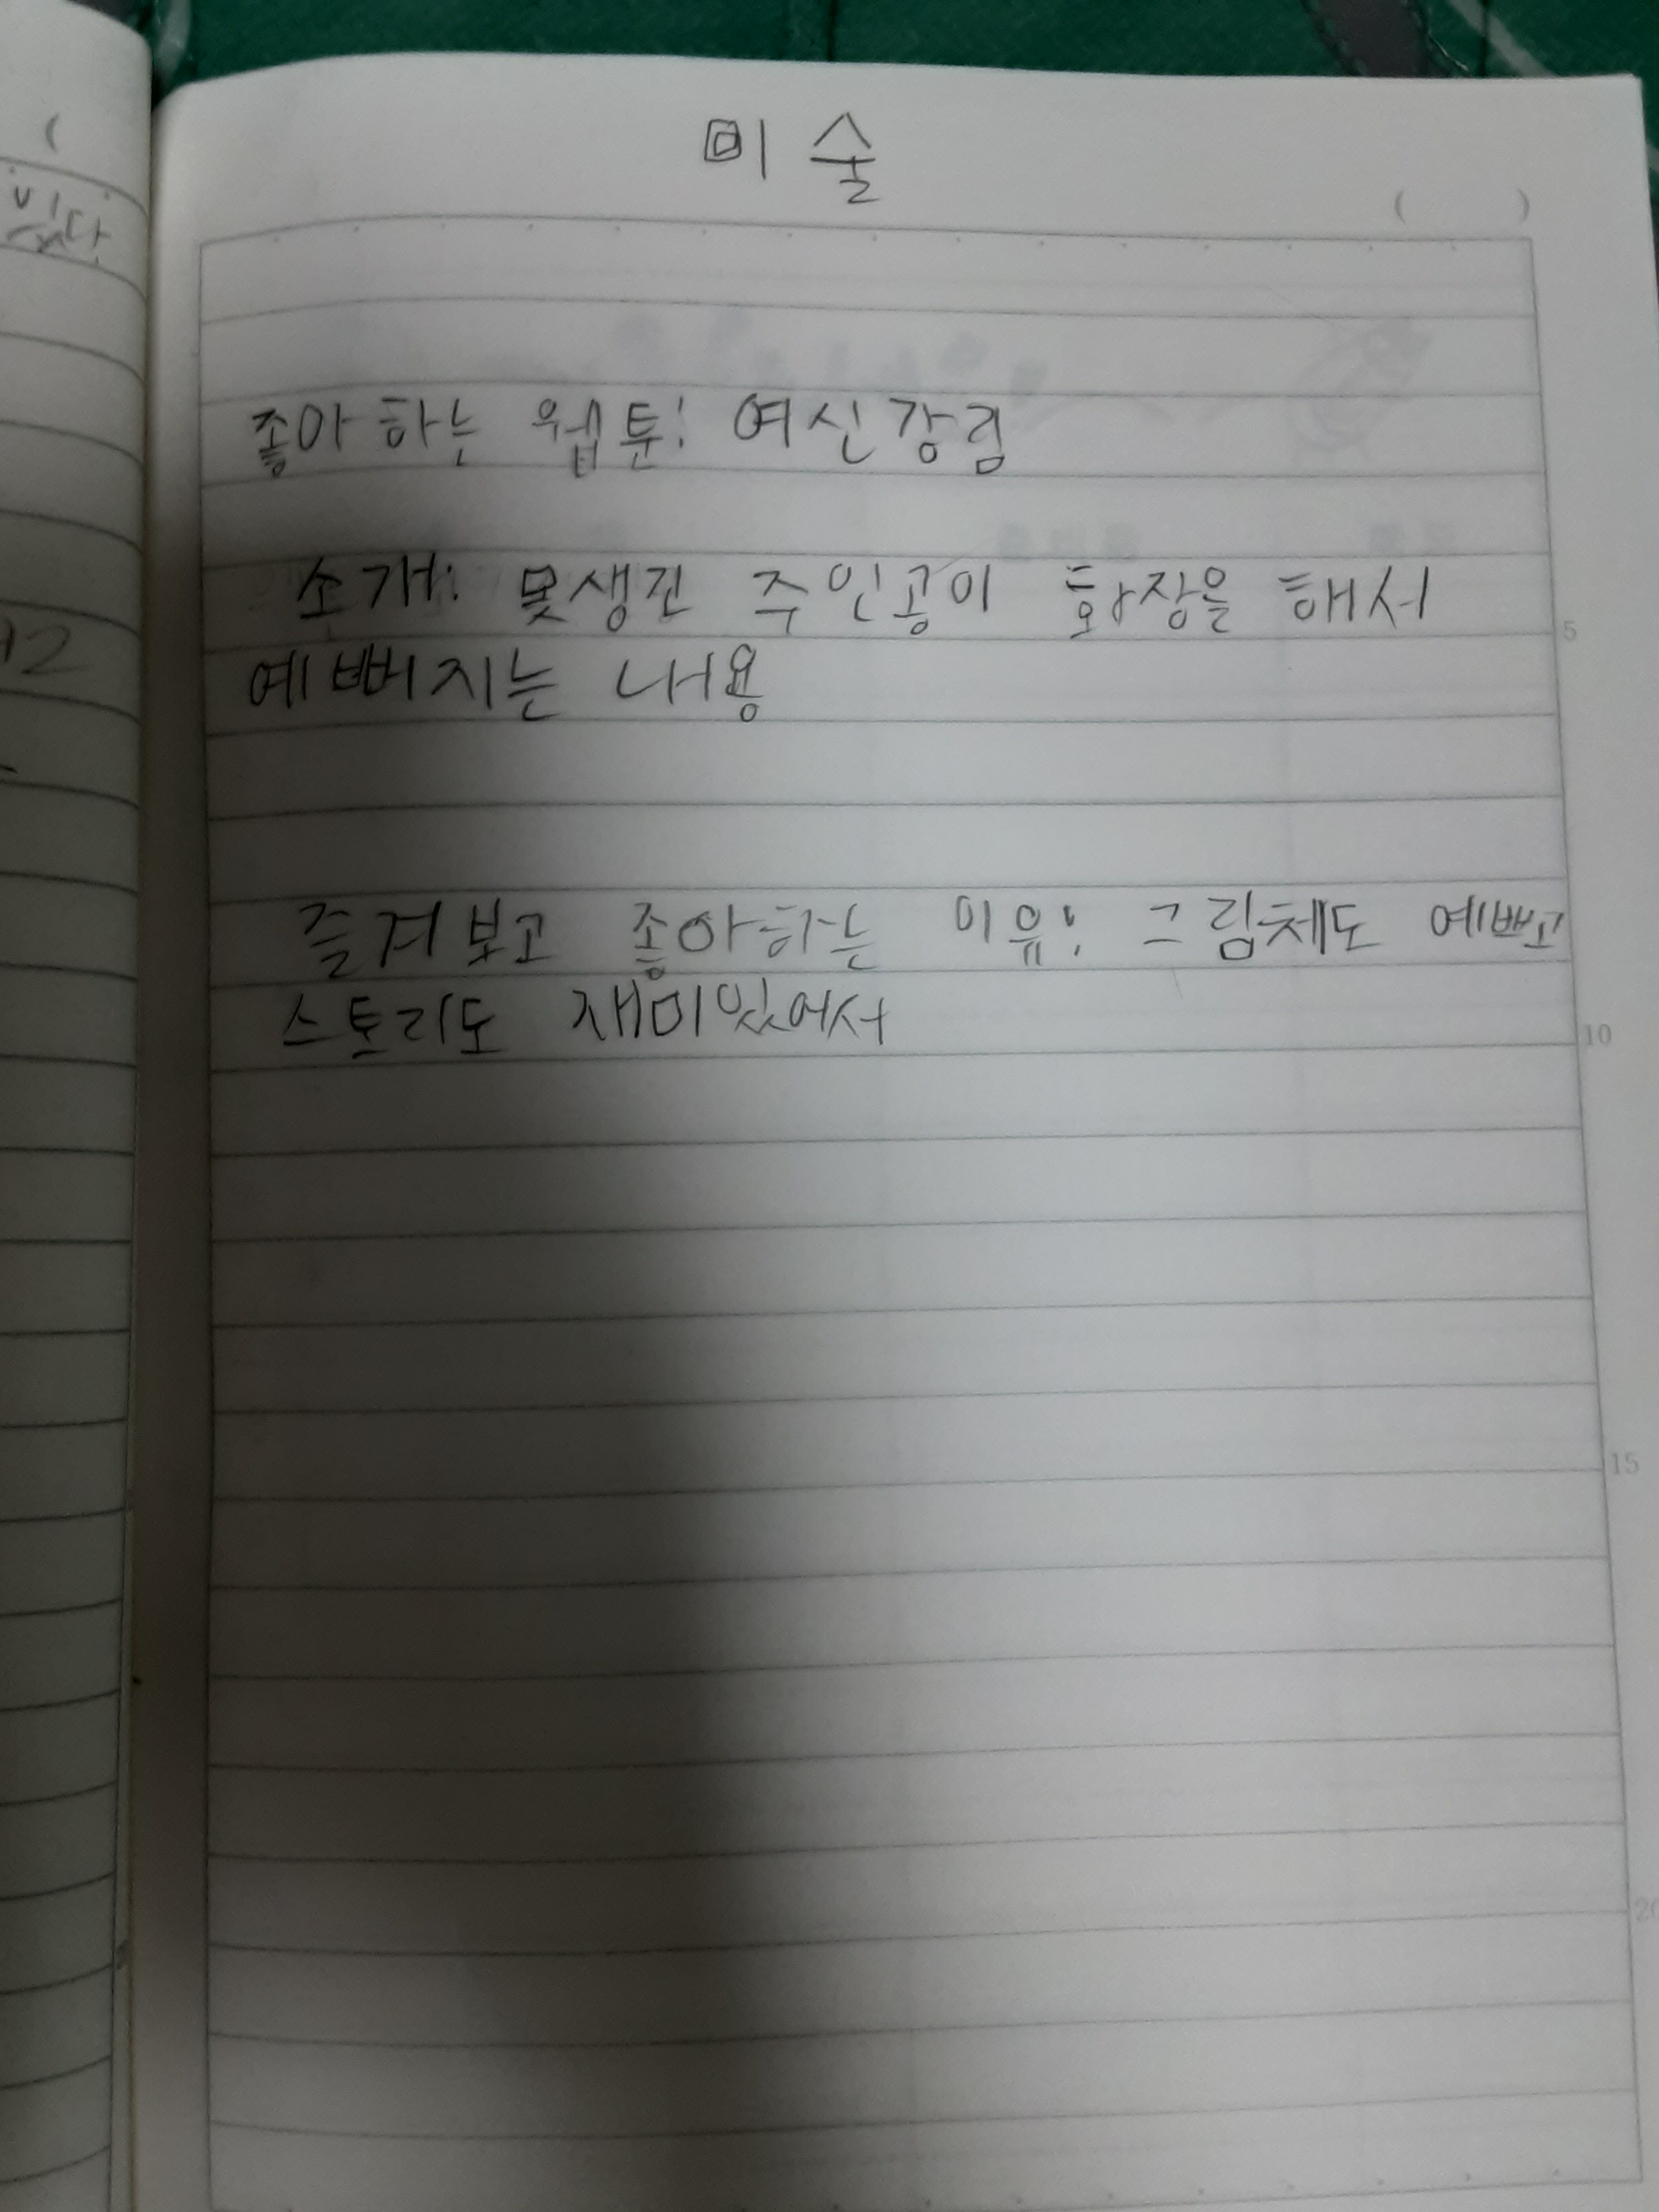 미술
( )
좋아하는 웹툰: 여신강림
소개: 못생긴 주인공이 화장을 해서
예뻐지는 내용
5
즐겨보고 좋아하는 이유: 그림체도 예쁘고
스토리도 재미있어서
10
15
20